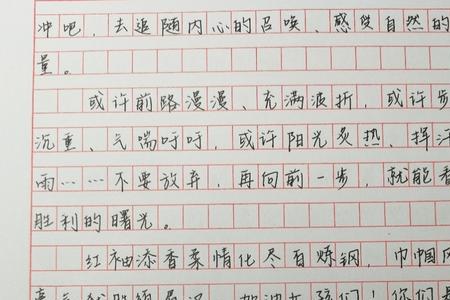 冲吧，去追随内心的召唤，感受自然的
量。
或许前路漫漫、充满波折，或许步
沉重、气喘吁吁，或许阳光炙热、挥汗
雨……不要放弃，再向前一步，就能看
胜利的曙光。
红袖添香柔情化尽百炼钢，巾帼风